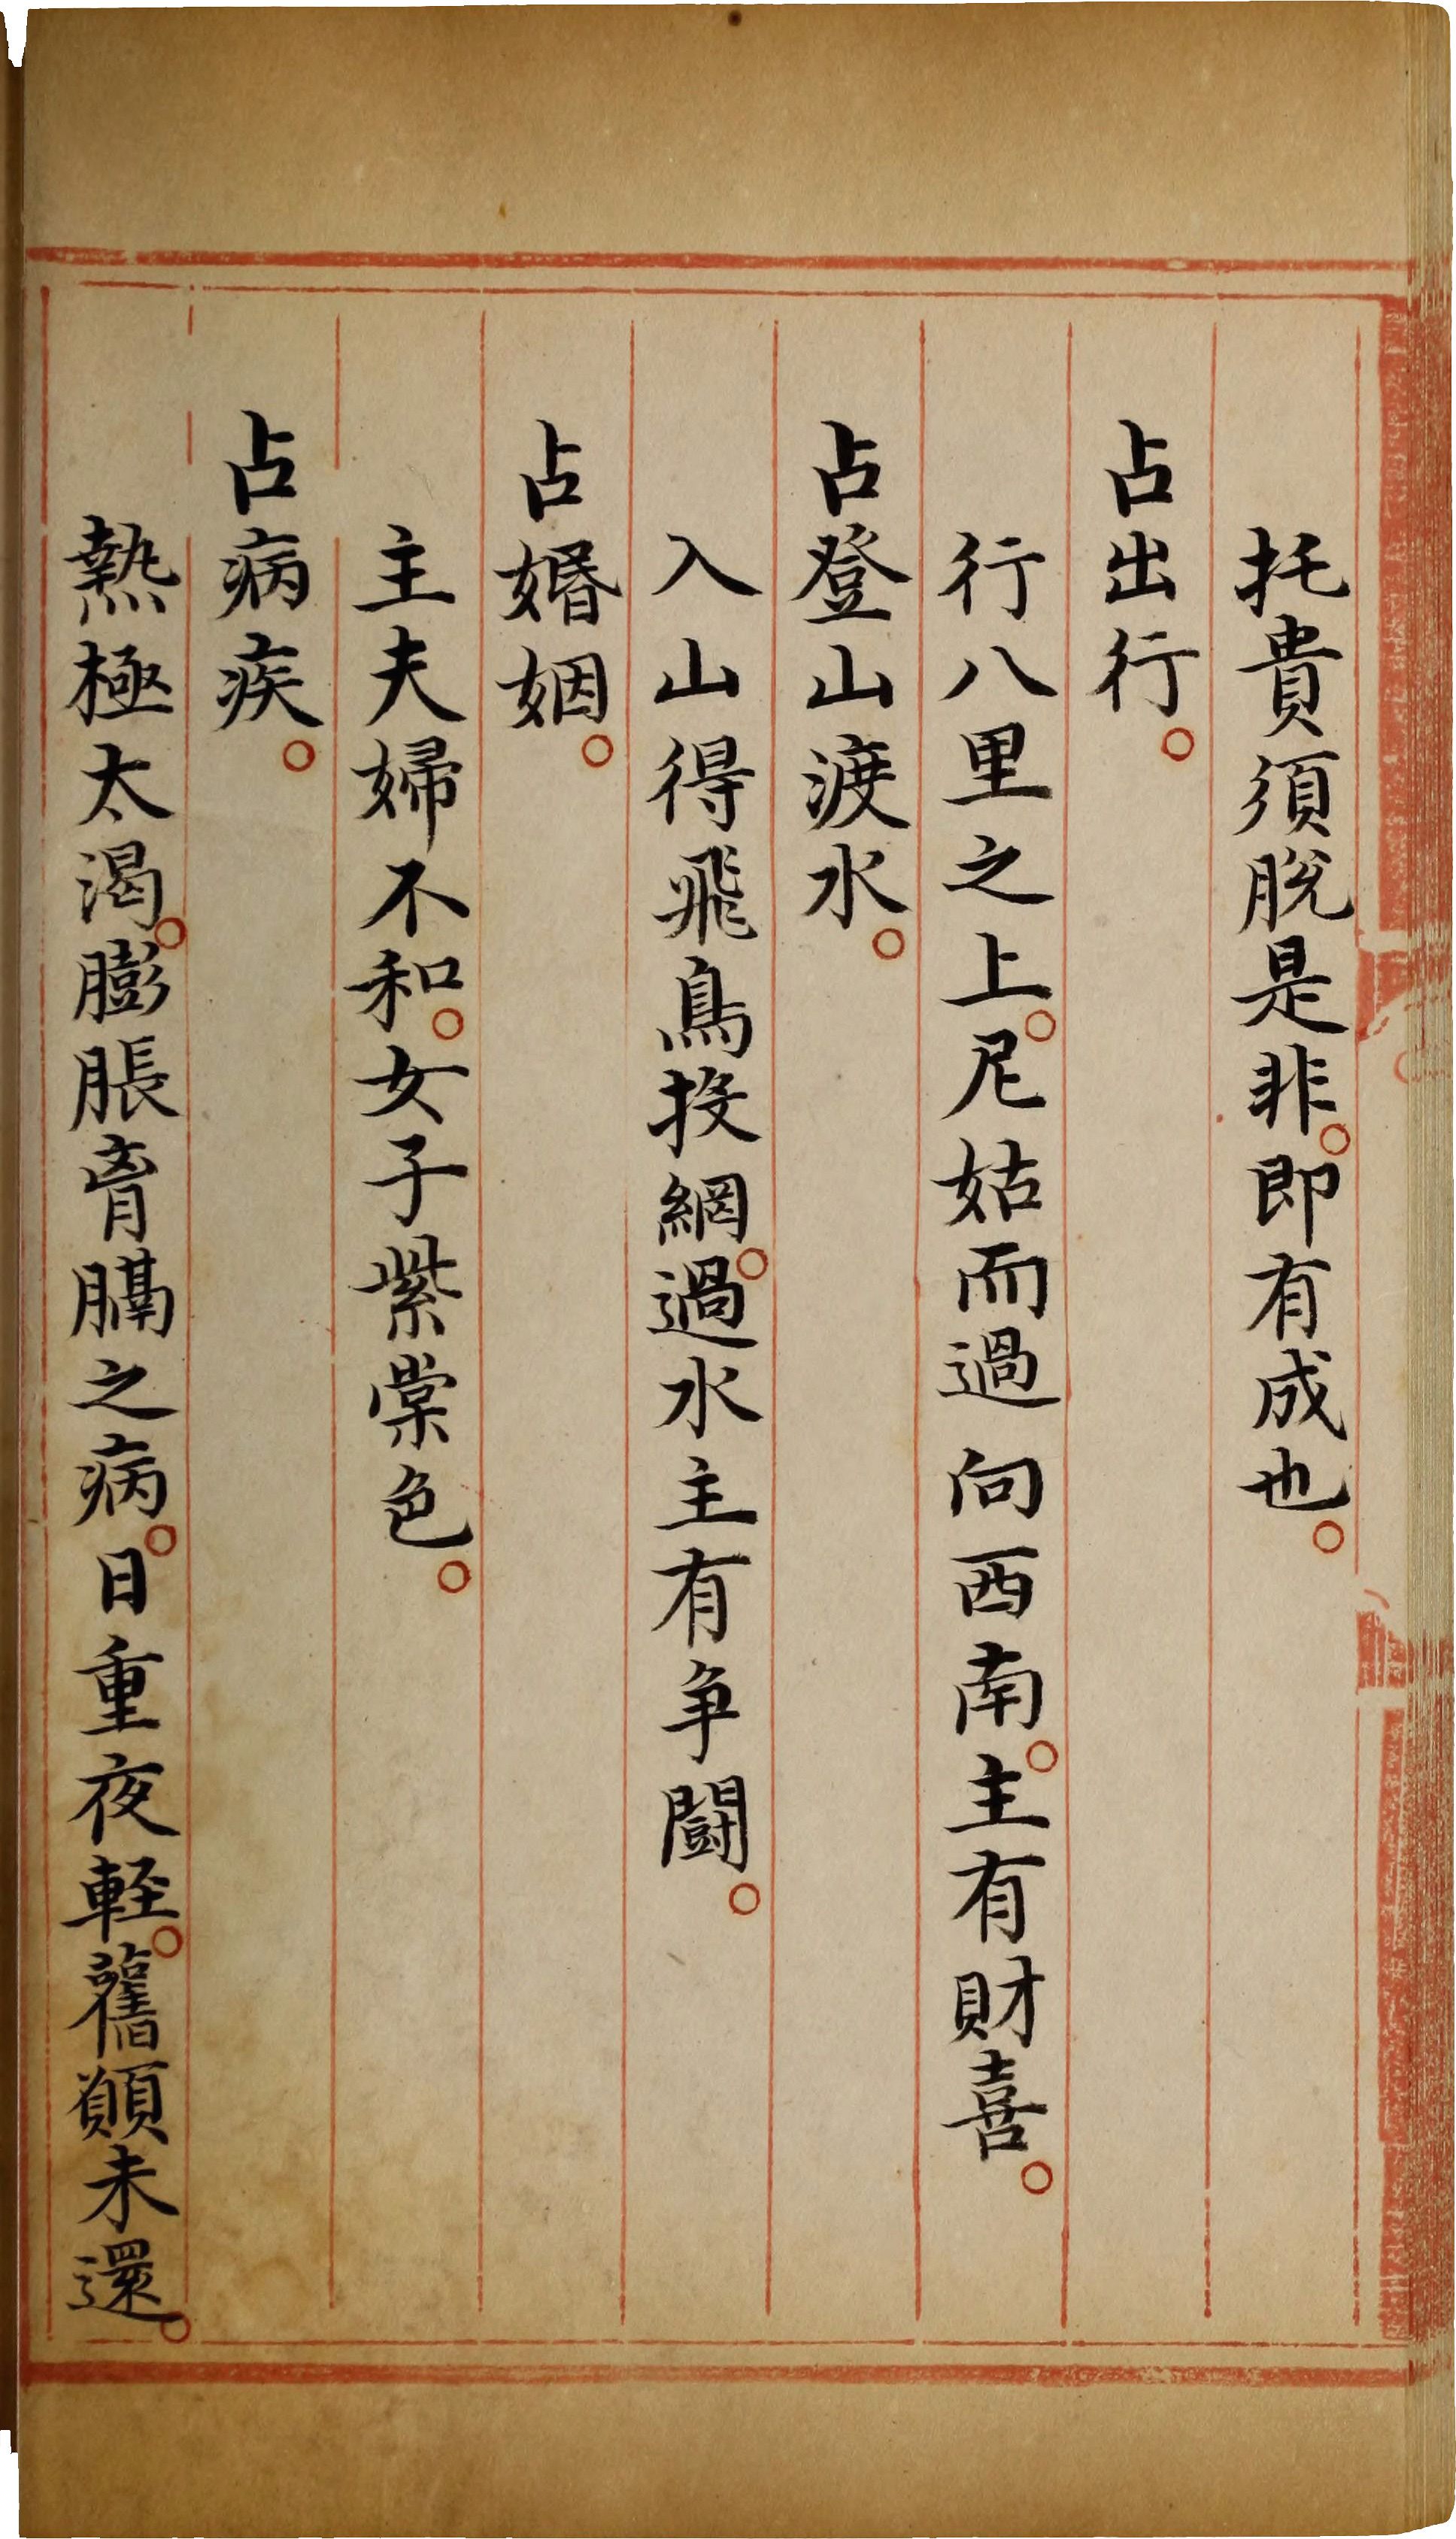 托貴須脫是非。即有成也。
占出行。
行八里之上。尼姑而過向西南。主有財喜。
占登山渡水。
入山得飛鳥投網。過水主有争鬪。
占婚姻。
主夫婦不和。女子紫棠色。
占病疾。
熱極太渴。膨脹育膈之病。日重夜軽。舊願未還。